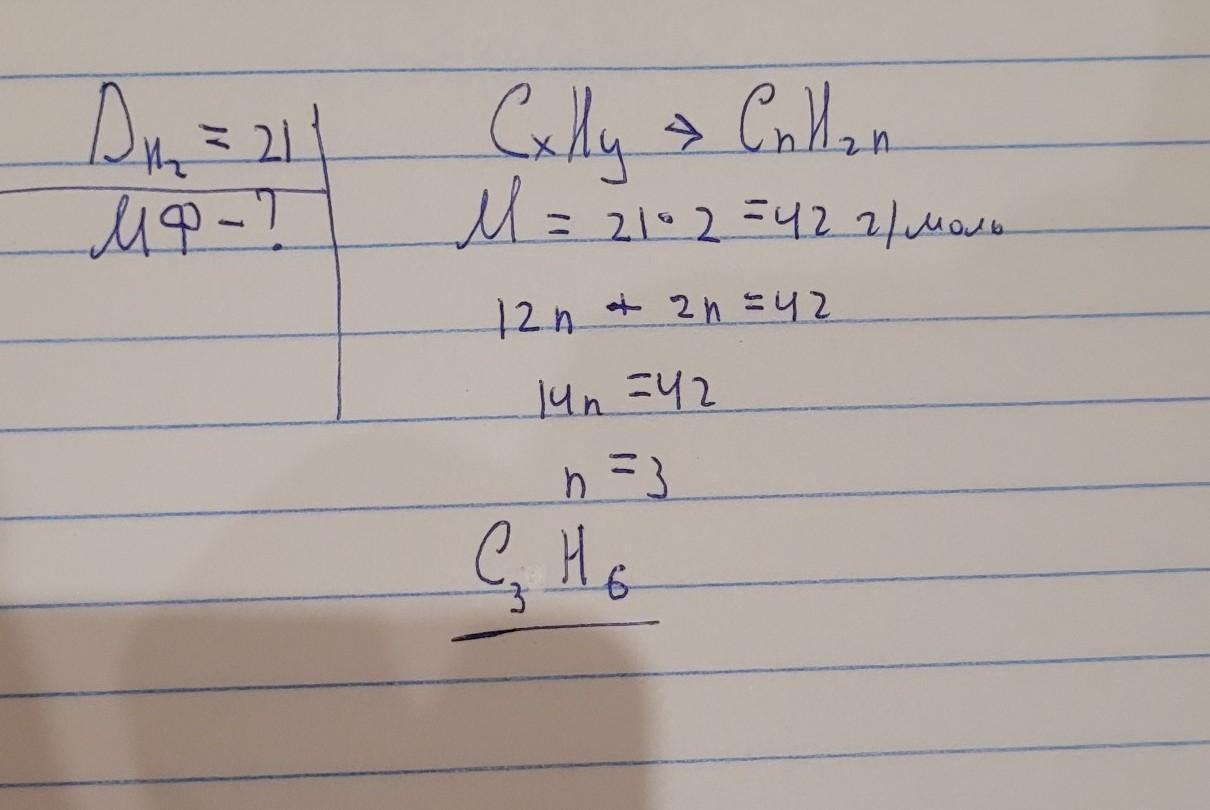 D_H₂ = 21
МФ - ?
CxHy → CnH₂n
M = 21 · 2 = 42 г/моль
12n + 2n = 42
14n = 42
n = 3
C₃H₆